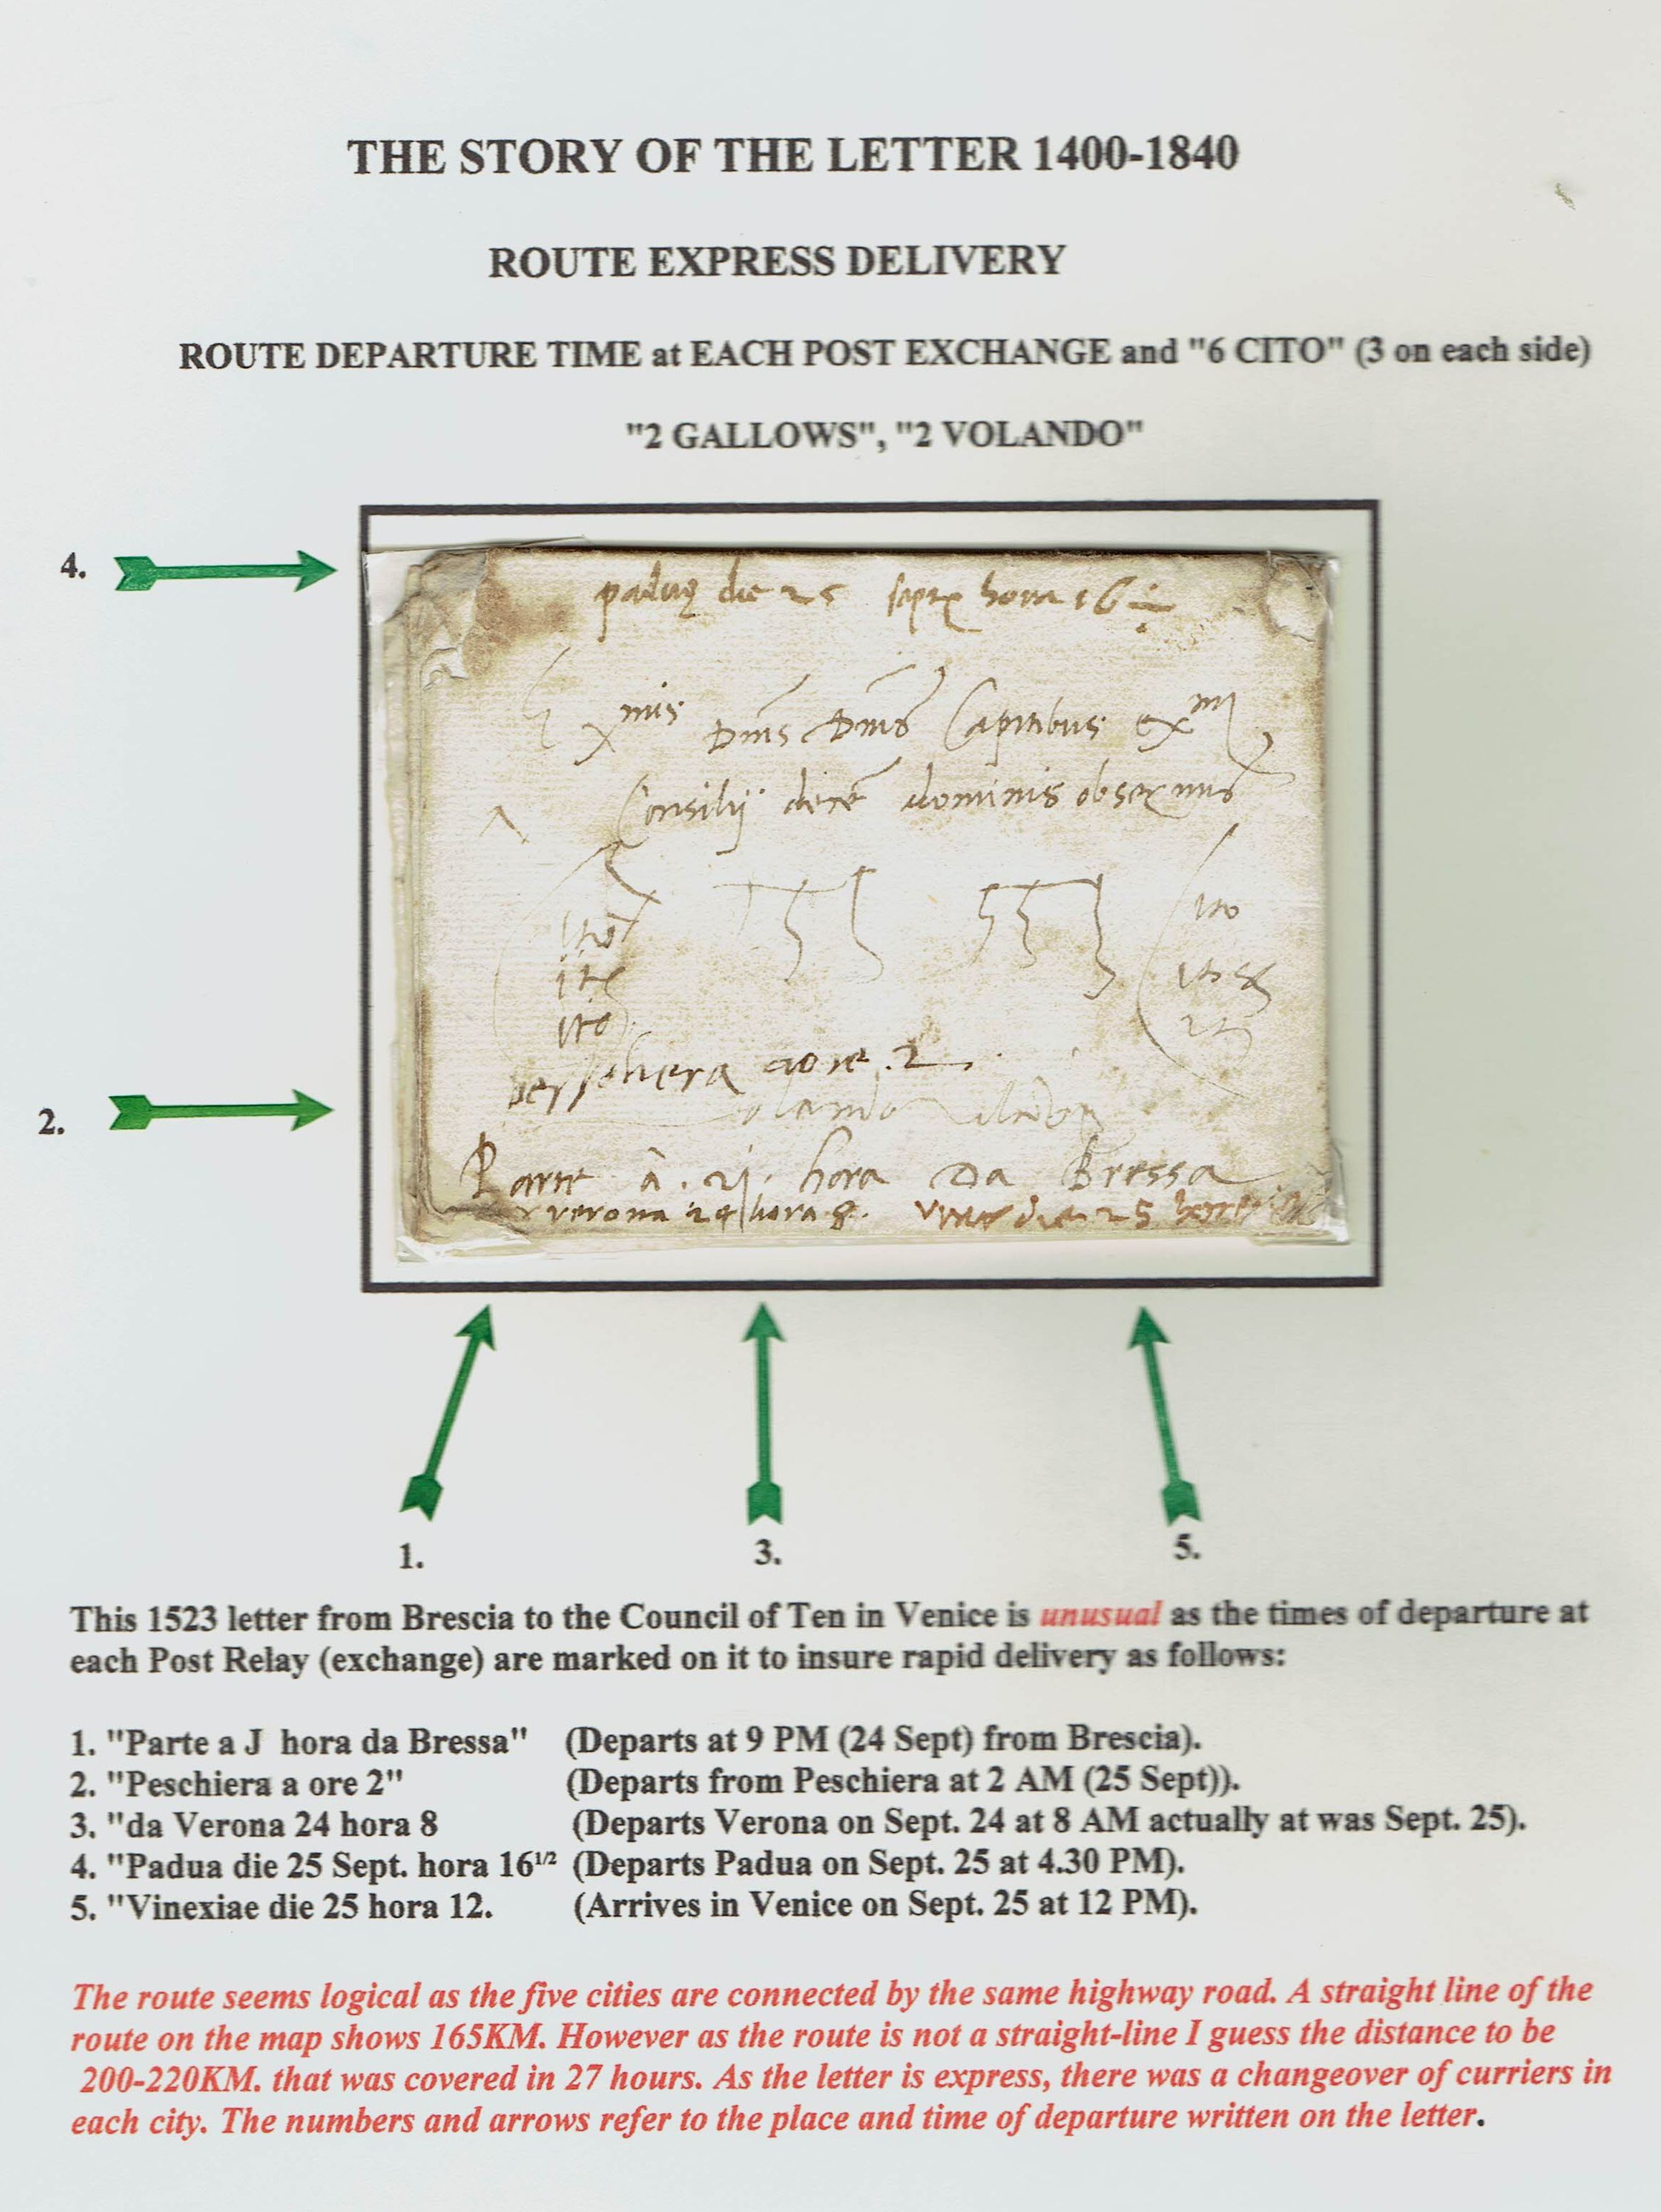 THE STORY OF THE LETTER 1400-1840
ROUTE EXPRESS DELIVERY
ROUTE DEPARTURE TIME at EACH POST EXCHANGE and "6 CITO" (3 on each side)
"2 GALLOWS", "2 VOLANDO"
4.
paduę die 25 hora 16
mis Capitibus
Consilij dominis
2.
ore 2
Parte à . 2j . hora Da Bressa
verona 24 hora 8. die 25
1.
3.
5.
This 1523 letter from Brescia to the Council of Ten in Venice is unusual as the times of departure at
each Post Relay (exchange) are marked on it to insure rapid delivery as follows:
1. "Parte a J hora da Bressa" (Departs at 9 PM (24 Sept) from Brescia).
2. "Peschiera a ore 2" (Departs from Peschiera at 2 AM (25 Sept)).
3. "da Verona 24 hora 8 (Departs Verona on Sept. 24 at 8 AM actually at was Sept. 25).
4. "Padua die 25 Sept. hora 16 1/2 (Departs Padua on Sept. 25 at 4.30 PM).
5. "Vinexiae die 25 hora 12. (Arrives in Venice on Sept. 25 at 12 PM).
The route seems logical as the five cities are connected by the same highway road. A straight line of the
route on the map shows 165KM. However as the route is not a straight-line I guess the distance to be
200-220KM. that was covered in 27 hours. As the letter is express, there was a changeover of curriers in
each city. The numbers and arrows refer to the place and time of departure written on the letter.